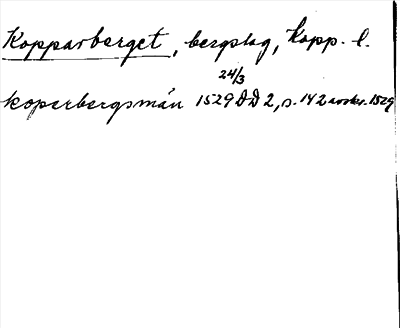 Kopparberget, bergslag, Kopp. l.
24/3
koperbergsmän 1529 DD 2, s. 142 avskr. 1529